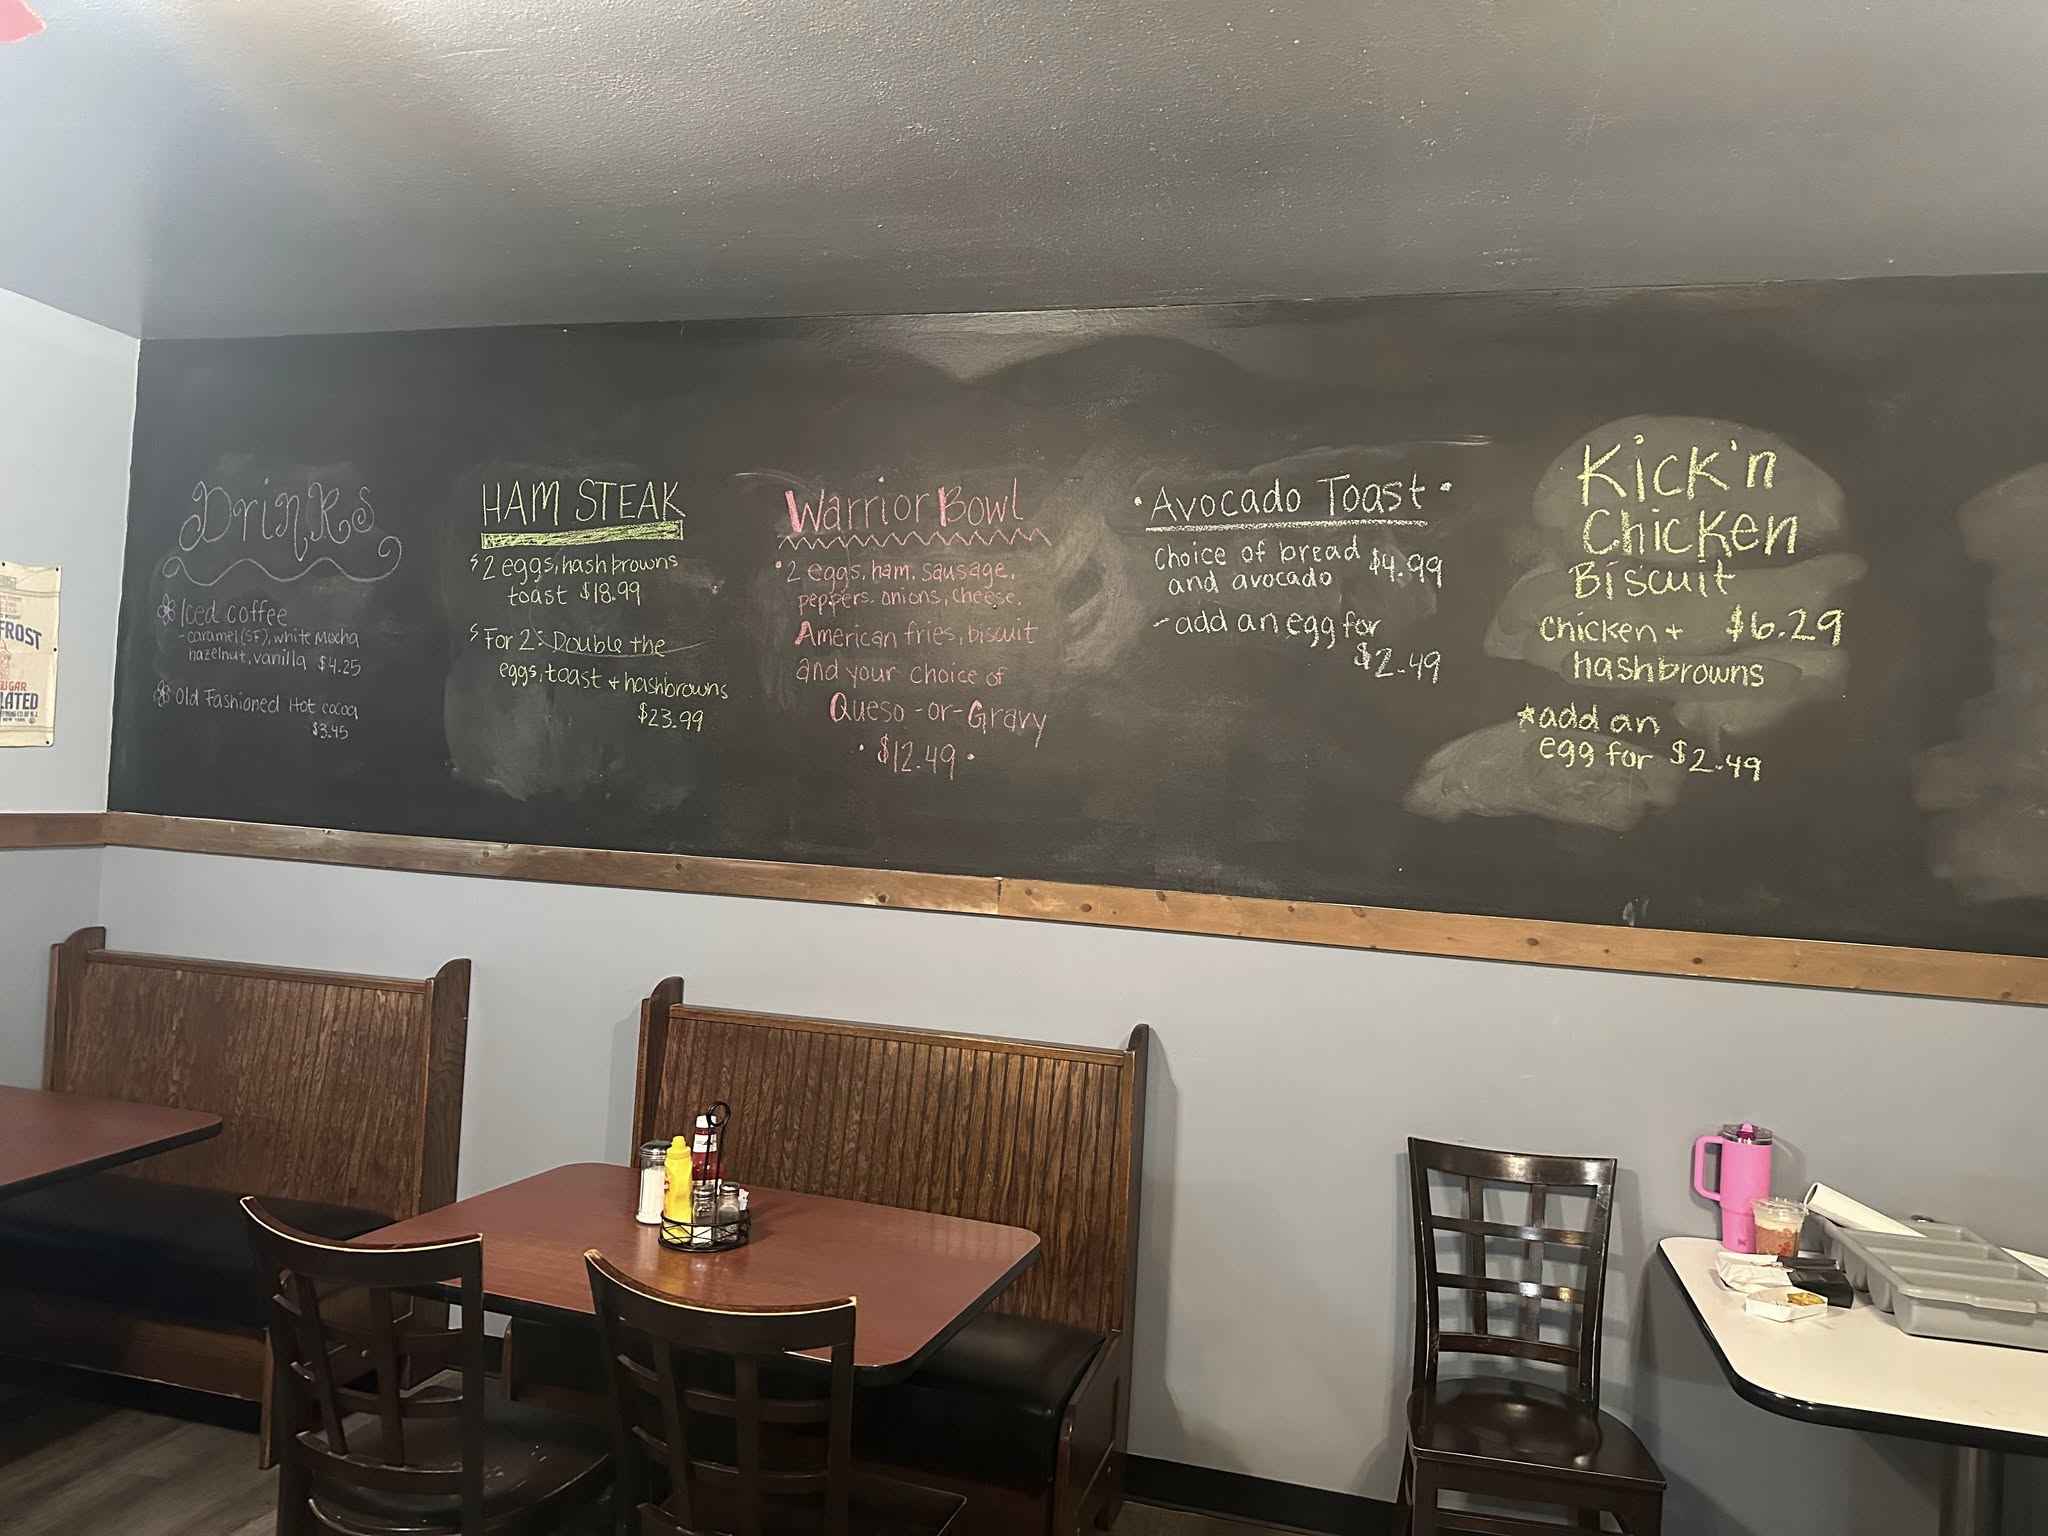 Drinks
Iced coffee
- caramel (SF), white Mocha
hazelnut, vanilla $4.25
Old Fashioned Hot cocoa
$3.45
HAM STEAK
2 eggs, hashbrowns
toast $18.99
For 2: Double the
eggs, toast + hashbrowns
$23.99
Warrior Bowl
• 2 eggs, ham, sausage,
peppers, onions, cheese,
American fries, biscuit
and your choice of
Queso -or- Gravy
• $12.49 •
• Avocado Toast •
Choice of bread $4.99
and avocado
- add an egg for
$2.49
Kick'n
Chicken
Biscuit
chicken + $6.29
hashbrowns
★ add an
egg for $2.49
FROST
SUGAR
LATED